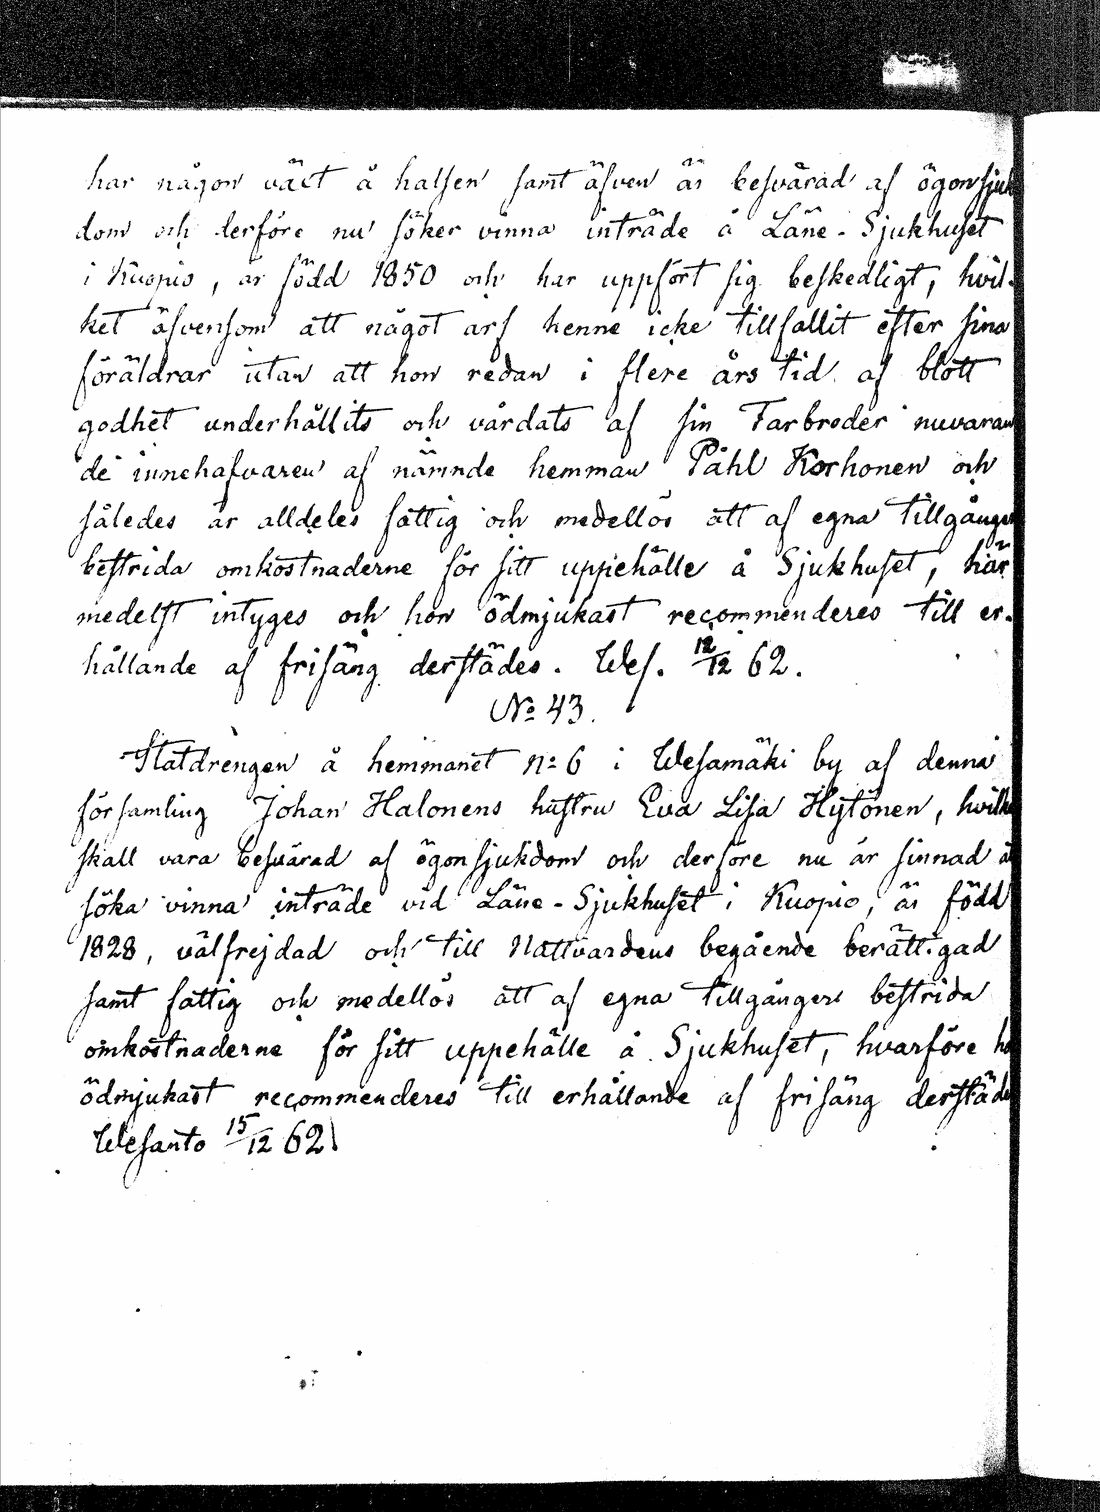 har någon växt å halsen samt äfven är besvärad af ögonsjuk
dom och derföre nu söker vinna inträde å Läne-Sjukhuset
i Kuopio, är född 1850 och har uppfört sig beskedligt, hvil-
ket äfvensom att något arf henne icke tillfallit efter sina
föräldrar utan att hon redan i flere års tid af blott
godhet underhållits och vårdats af sin Farbroder nuvaran
de innehafvaren af nämnde hemman Påhl Korhonen och
således är alldeles fattig och medellös att af egna tillgångar
bestrida omkostnaderne för sitt uppehälle å Sjukhuset, här
medelst intyges och hon ödmjukast recommenderes till er-
hållande af frisäng derstädes. Wes. 12/12 62.
No 43.
Statdrengen å hemmanet No 6 i Wesamäki by af denna
församling Johan Halonens hustru Eva Lisa Hytönen, hvilke
skall vara besvärad af ögonsjukdom och derföre nu är sinnad a
söka vinna inträde vid Läne-Sjukhuset i Kuopio, är född
1828, välfrejdad och till Nattvardens begående berättigad
samt fattig och medellös att af egna tillgångar bestrida
omkostnaderne för sitt uppehälle å Sjukhuset, hvarföre ho
ödmjukast recommenderes till erhållande af frisäng derstäde
Wesanto 15/12 62